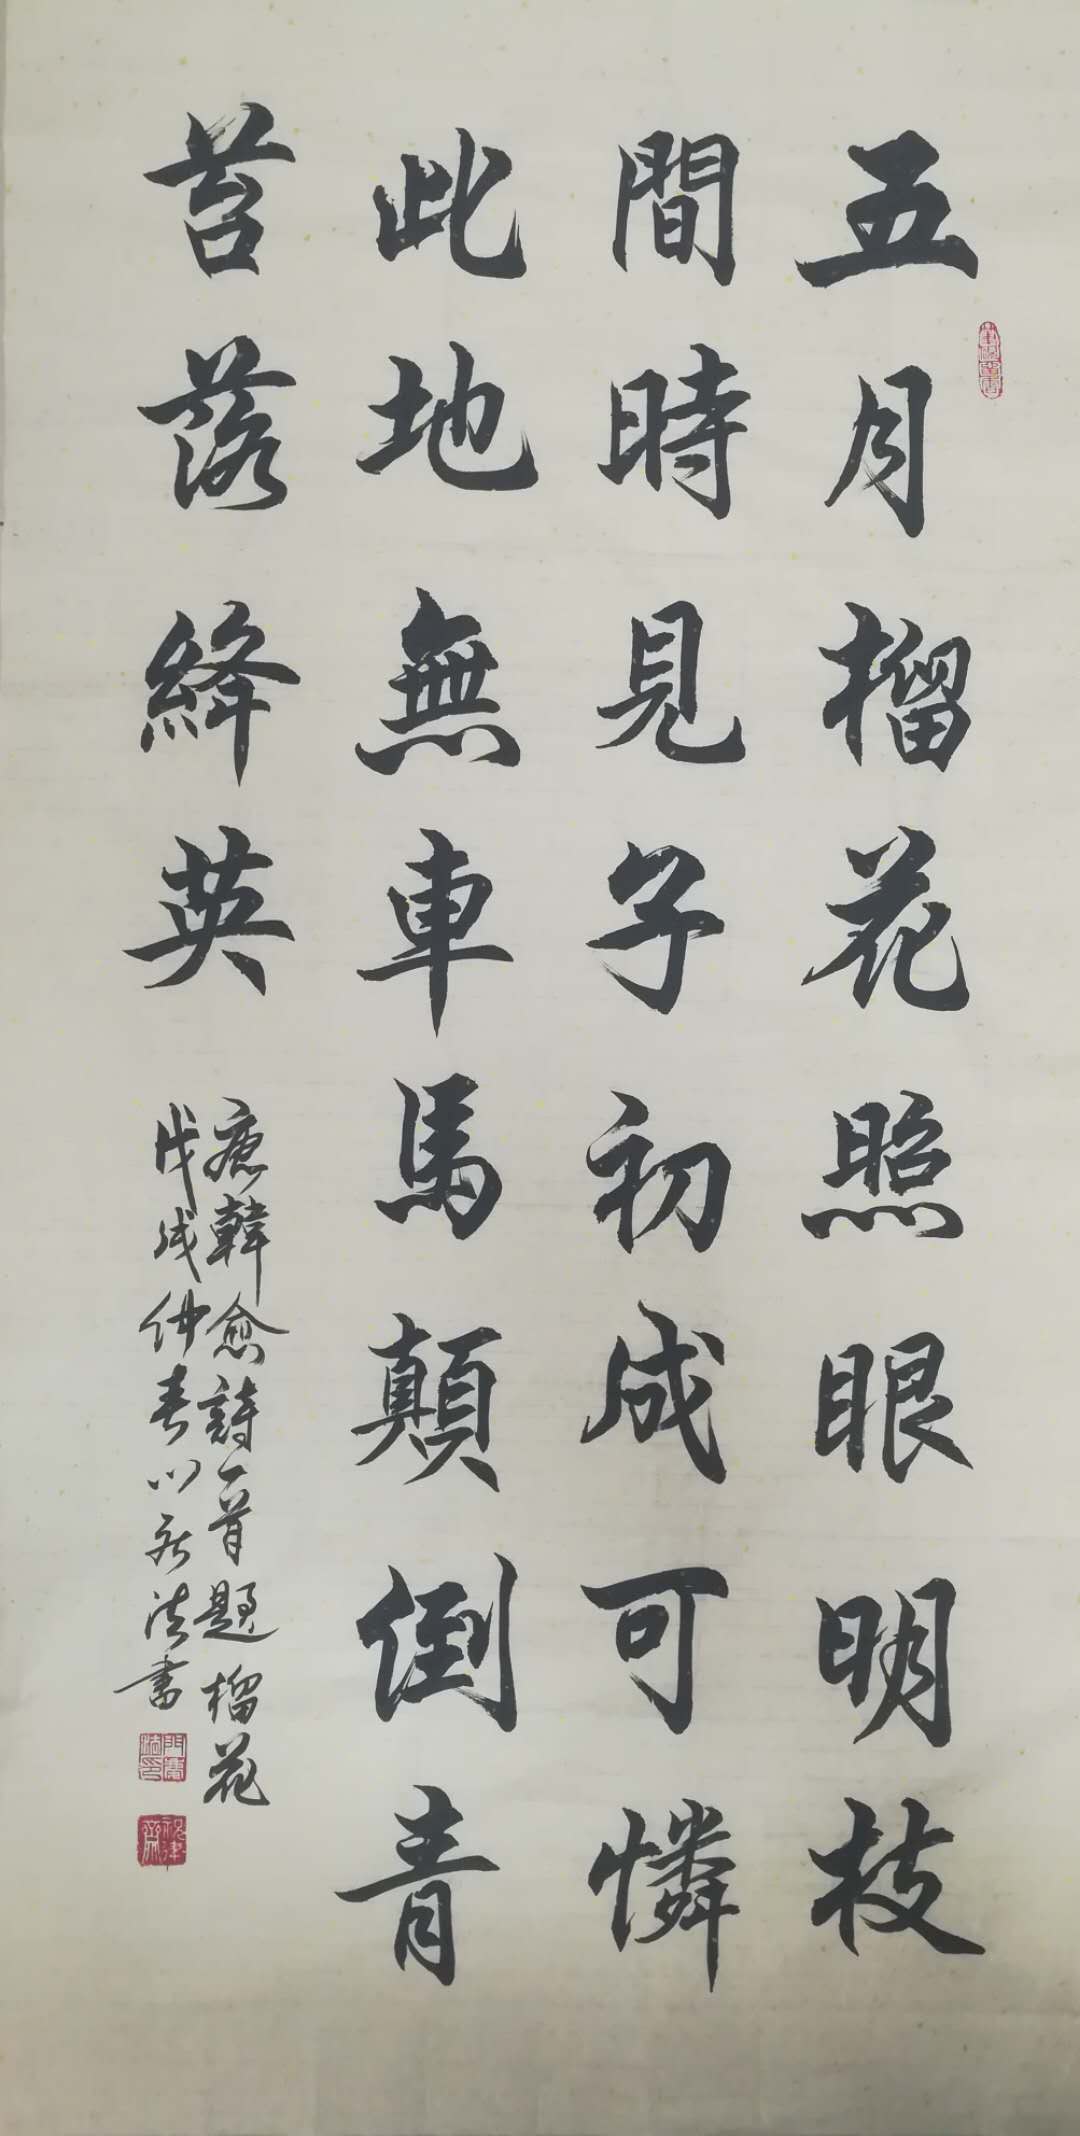 五月榴花照眼明枝
間時見子初成可憐
此地無車馬顛倒青
苔落絳英
唐韓愈詩一首題榴花
戊戌仲春 法書